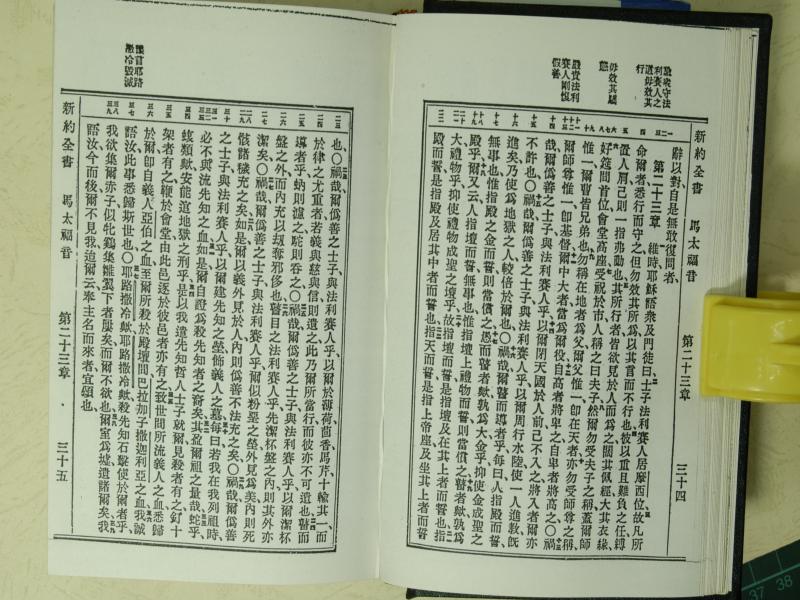 新約全書 馬太福音 第二十三章 三十四
利賽人之
道毋效其
行
毋效其驕
態
設責法利
賽人剛愎
假善
辭以對自是無敢復問者
第二十三章 維時耶穌語衆及門徒曰士子法利賽人居摩西位故凡所
命爾者悉行而守之但勿效其所爲以其言而不行也彼以重且難負之任縛
置人肩己則一指弗動也其所行者皆欲見於人而爲之闊其佩經大其衣緣
好筵間首位會堂高座受祝於市人稱之曰夫子然爾勿受夫子之稱蓋爾師
惟一爾曹皆兄弟也勿稱在地者爲父爾父惟一卽在天者亦勿受師尊之稱
爾師尊惟一卽基督爾中大者當爲爾役自高者將卑之自卑者將高之〇禍
哉爾僞善之士子與法利賽人乎以爾閉天國於人前己不入之將入者爾亦
不許也〇禍哉爾僞善之士子與法利賽人乎以爾周行水陸使一人進教旣
進矣乃使爲地獄之人較倍於爾也〇禍哉爾瞽而導者乎每曰人指殿而誓
無事也惟指殿之金而誓則當償之愚而瞽者歟孰爲大金乎抑使金成聖之
殿乎爾又云人指壇而誓無事也惟指壇上禮物而誓則當償之瞽者歟孰爲
大禮物乎抑使禮物成聖之壇乎故指壇而誓是指壇及在其上者而誓也指
殿而誓是指殿及居其中者而誓也指天而誓是指上帝座及坐其上者而誓
也〇禍哉爾僞善之士子與法利賽人乎以爾於薄荷茴香馬芹十輸其一而
於律之尤重者若義與慈與信則遺之此乃爾所當行而彼亦不可遺也瞽而
導者乎蚋則濾之駝則吞之〇禍哉爾僞善之士子與法利賽人乎以爾潔杯
盤之外而內充以刼奪邪侈也瞽目之法利賽人乎先潔杯盤之內則其外亦
潔矣〇禍哉爾僞善之士子與法利賽人乎爾似粉堊之塋外見爲美內則死
骸諸穢充之矣如是爾以義外見於人內則僞善不法充之矣〇禍哉爾僞善
之士子與法利賽人乎以爾建先知之塋飾義人之墓每曰若我在我列祖時
必不與流先知之血如是爾自證爲殺先知者之裔矣其盈爾祖之量哉蛇乎
蝮類歟安能逭地獄之刑乎是以我遣先知哲人士子就爾見殺者有之釘十
架者有之鞭於會堂由此邑逐於彼邑者亦有之致世間所流義人之血悉歸
於爾卽自義人亞伯之血至爾所殺於殿壇間巴拉加子撒迦利亞之血我誠
語汝此事悉歸斯世也〇耶路撒冷歟耶路撒冷歟殺先知石擊使於爾者乎
我欲集爾赤子似牝鷄集雛翼下者屢矣而爾不欲也爾室爲墟遺諸爾矣我
語汝今而後爾不見我迨爾云奉主名而來者宜頌也
預言耶路
撒冷毀滅
新約全書 馬太福音 第二十三章 三十五
37 38